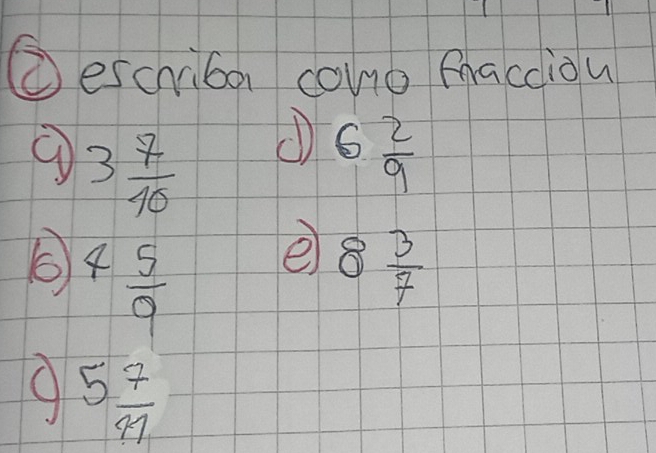 ② escriba como fracción
a) 3 7/10 d) 6 2/9
b) 4 5/9 e) 8 3/7
c) 5 7/11